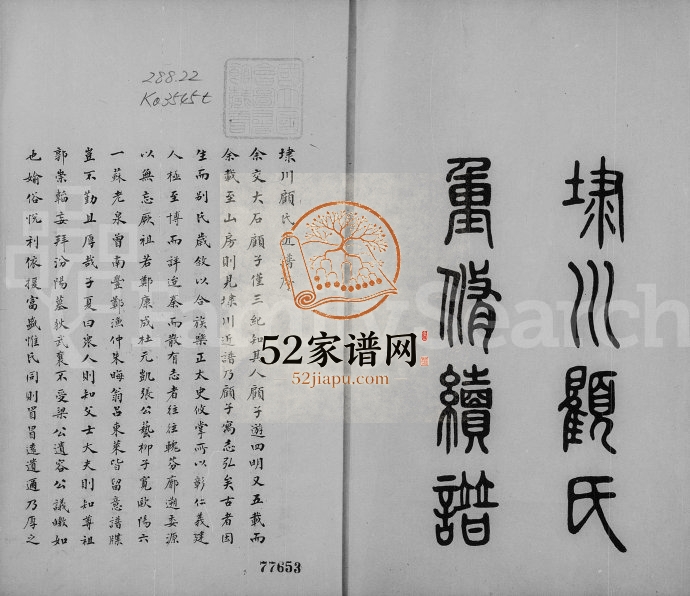 埭川顧氏
重脩續譜
288.22
Ko3545t
埭川顧氏近譜序
余交大石顧子僅三紀知其人顧子遊四明又五載而
余載至山房則見埭川近譜乃顧子寫志弘矣古者因
生而别氏歲敘以合族樂正太史攸掌所以彰仁義建
人極至博而詳迄秦而散有志者往往
以無忘厥祖若鄭康成杜元凱張公藝柳子寬歐陽六
一蘇老泉曾南豐鄭漁仲朱晦翁呂東萊皆留意譜牒
豈不勤且厚哉子夏曰衆人則知父士大夫則知尊祖
郭崇韜妄拜汾陽墓狄武襄不受梁公遺容公議嫩如
也媮俗悅利依援富盛惟氏同則冒冒遠遺通乃厚之
77653
52家谱网
52jiapu.com
FamilySearch